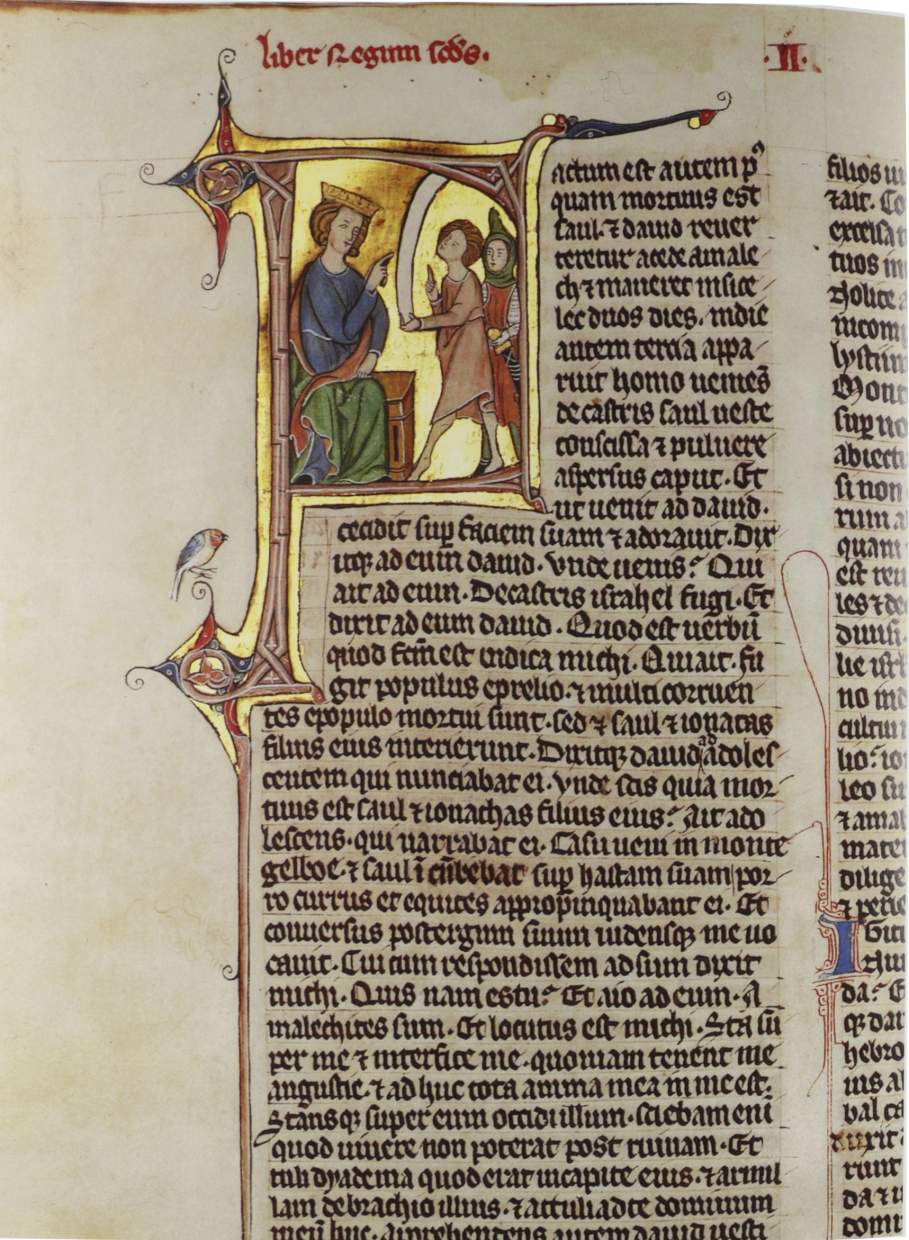 liber Regum scds.
·II·
actum est autem pꝰ
quam mortuus est
saul· ⁊ dauid reuer
teretur a cede amale
ch ⁊ maneret in sice
lec duos dies· in die
autem tercia appa
ruit homo ueniēs
de castris saul ueste
conscissa ⁊ puluere
aspersus caput· Et
ut uenit ad dauid·
cecidit suꝑ faciem suam ⁊ adorauit· Dix
itqꝫ ad eum dauid· Vnde uenis? Qui
ait ad eum· De castris israhel fugi· Et
dixit ad eum dauid· Quod est uerbū
quod fcm̄ est indica michi· Qui ait· fu
git populus e prelio· ⁊ multi corruen
tes e populo mortui sunt· sed ⁊ saul ⁊ ionatas
filius eius interierunt· Dixitqꝫ dauid ad adoles
centem qui nunciabat ei· Vnde scis quia mor
tuus est saul ⁊ ionathas filius eius? Ait ado
lescens· qui narrabat ei· Casu ueni in monte
gelboe· ⁊ saul īcūbebat suꝑ hastam suam por
ro currus et equites appropinquabant ei· Et
conuersus post ergum suum uidensqꝫ me uo
cauit· Cui cum respondissem adsum dixit
michi· Quis nam es tu? Et aio ad eum· A
malechites sum· Et locutus est michi· Sta sū
per me ⁊ interfice me· quoniam tenent me
angustie· ⁊ ad huc tota anima mea in me est·
Stansqꝫ super eum occidi illum· sciebam eni
quod uiuere non poterat post ruinam· Et
tuli dyadema quod erat in capite eius· ⁊ armil
lam de brachio illius· ⁊ attuli ad te dominum
meū huc· apprehendens autem dauid uesti
filios
⁊ait· Co
excelsa
tuos in
⁊holite
Mont
suꝑ
abiect
si non
rum a
quam
est
les ⁊ de
no
cultu
leo su
⁊ ama
mate
dilige
Git
da?
qꝫ dau
hebro
ius
ruit
da ⁊
domu